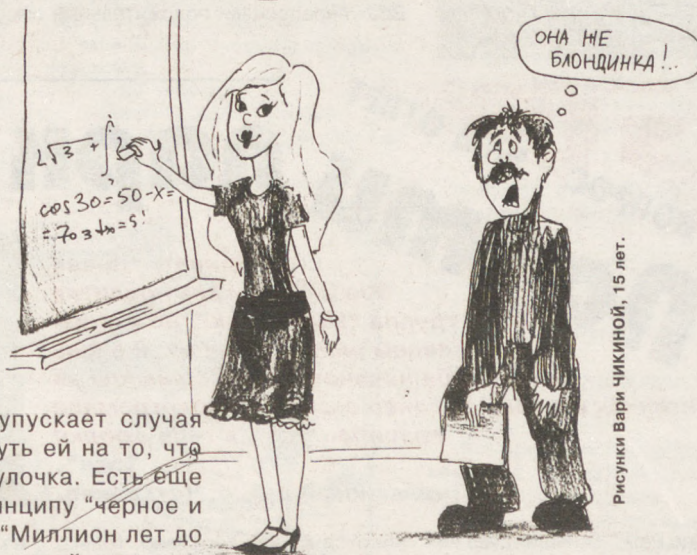 ОНА ЖЕ
БЛОНДИНКА!..
2√3 + ∫
cos 30 = 50 - x =
Рисунки Вари ЧИКИНОЙ, 15 лет.
упускает случая
уть ей на то, что
улочка. Есть еще
инципу "черное и
"Миллион лет до